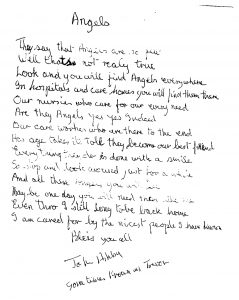 Angels
They say that Angels are so few
Well thats not realy true
Look and you will find Angels everywhere
In hospitals and care homes you will find them there
Our nurses who care for our every need
Are they Angels yes yes Indeed
Our care workers who are there to the end
Has age takes its tole they become our best friend
Every thing they do is done with a smile
So stop and look around just for a while
And all these Angels you will
May be one day you will need them
Even thro I still long to be back home
I am cared for by the nicest people I have known
Bless you all
John
some times known as